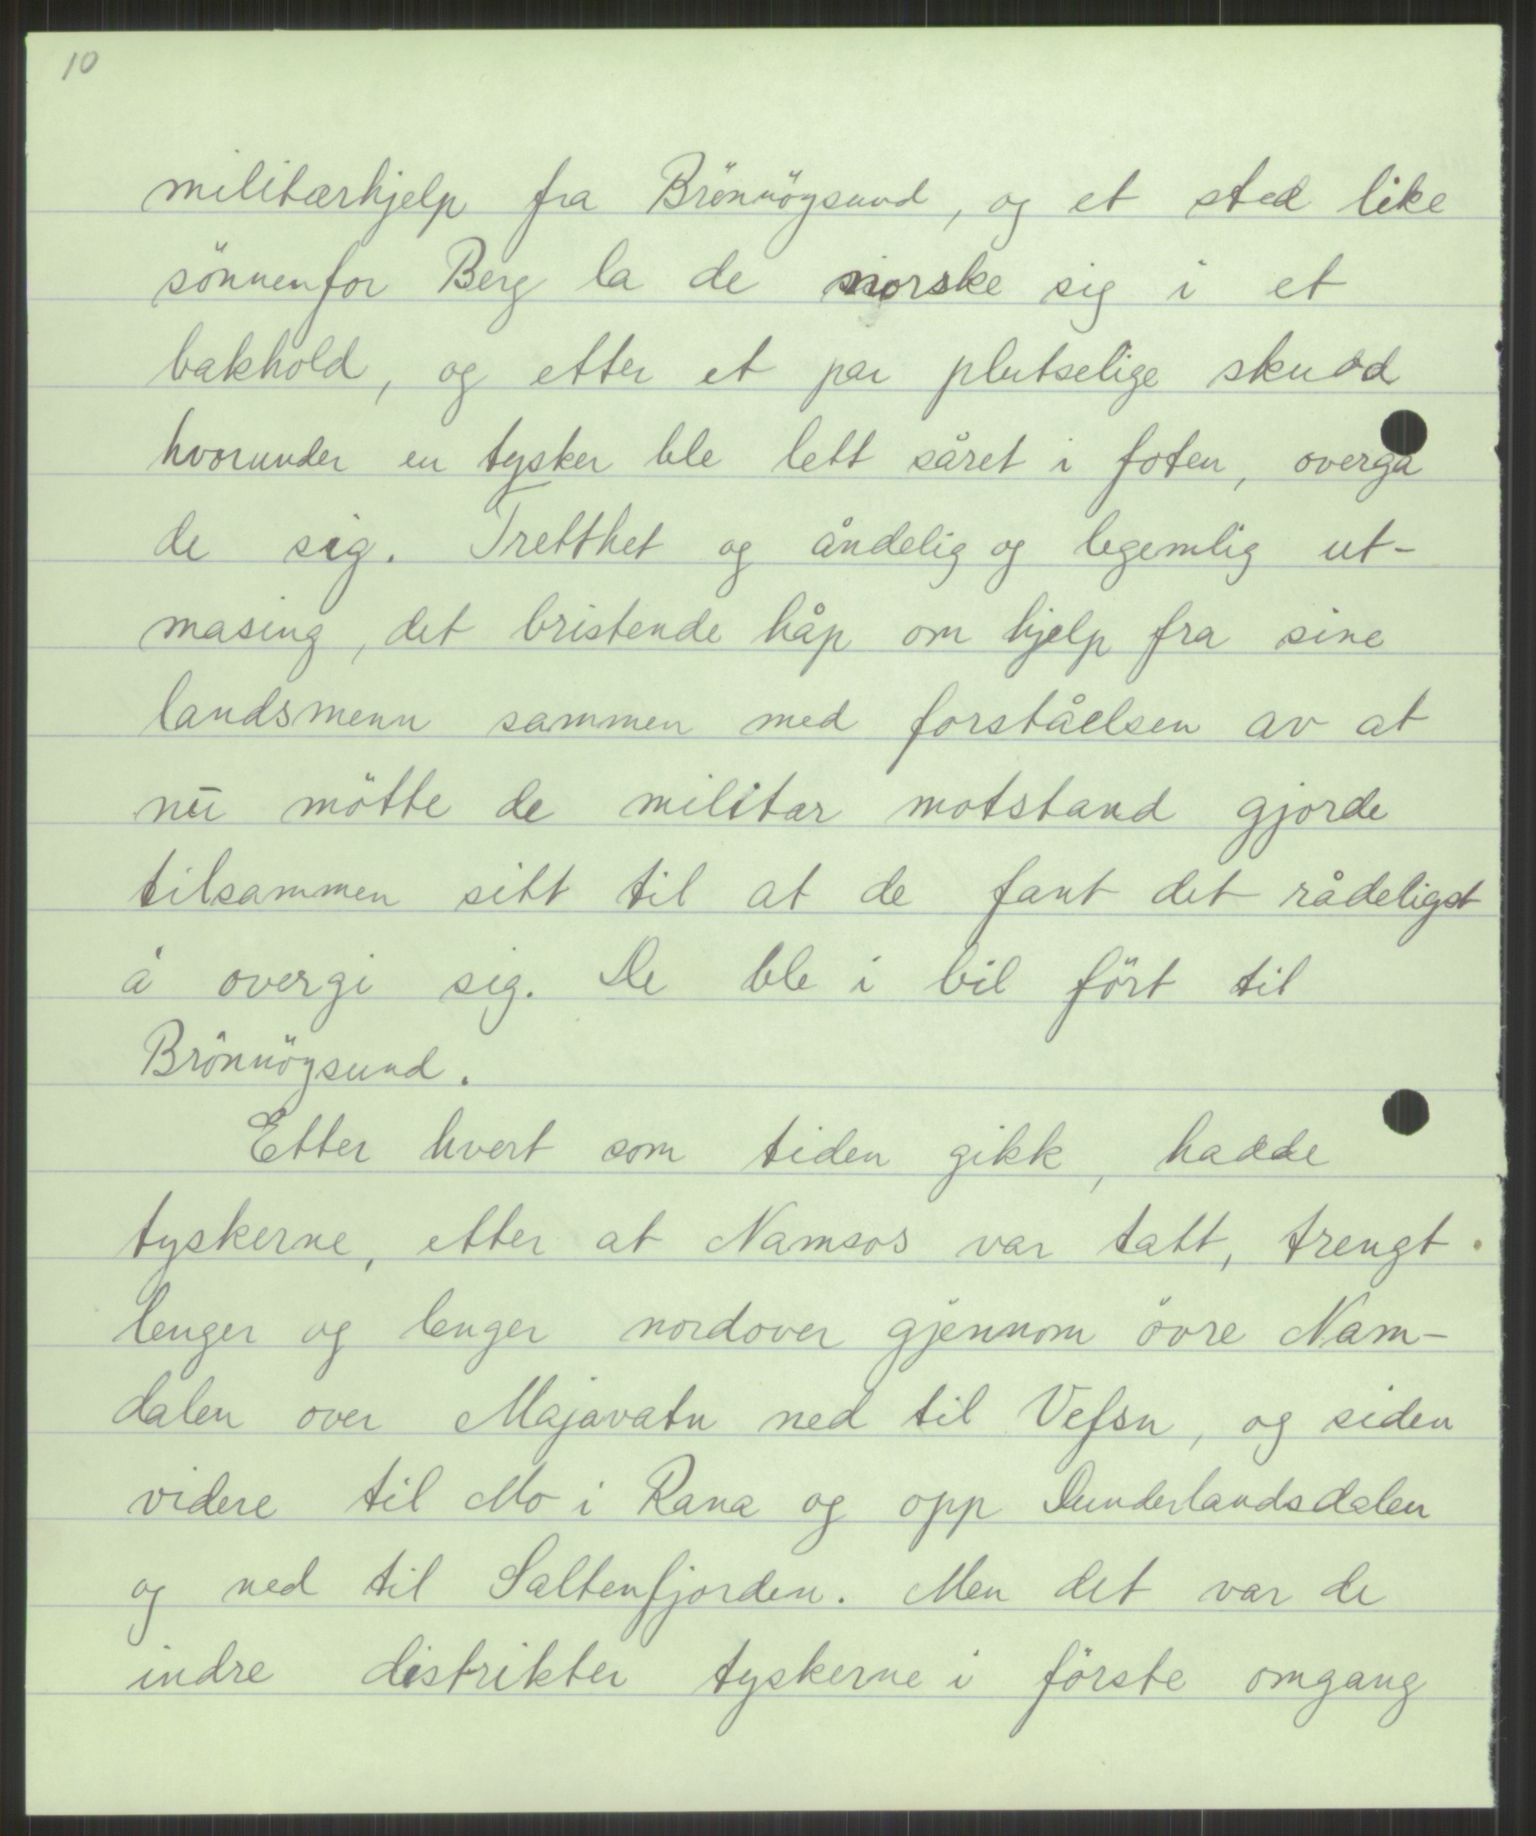 10
militærhjelp fra Brönnöysund, og et sted like
sönnenfor Berg la de norske sig i et
bakhold, og etter et par plutselige skudd
hvorunder en tysker ble lett såret i foten, overga
de sig. Tretthet og åndelig og legemlig ut-
masing, det bristende håp om hjelp fra sine
landsmenn sammen med forståelsen av at
nu mötte de militær motstand gjorde
tilsammen sitt til at de fant det rådeligst
å overgi sig. De ble i bil fört til
Brönnöysund.
Etter hvert som tiden gikk, hadde
tyskerne, etter at Namsos var tatt, trengt
lenger og lenger nordover gjennom övre Nam-
dalen over Majavatn ned til Vefsn, og siden
videre til Mo i Rana og opp Dunderlandsdalen
og ned til Saltenfjorden. Men det var de
indre distrikter tyskerne i förste omgang